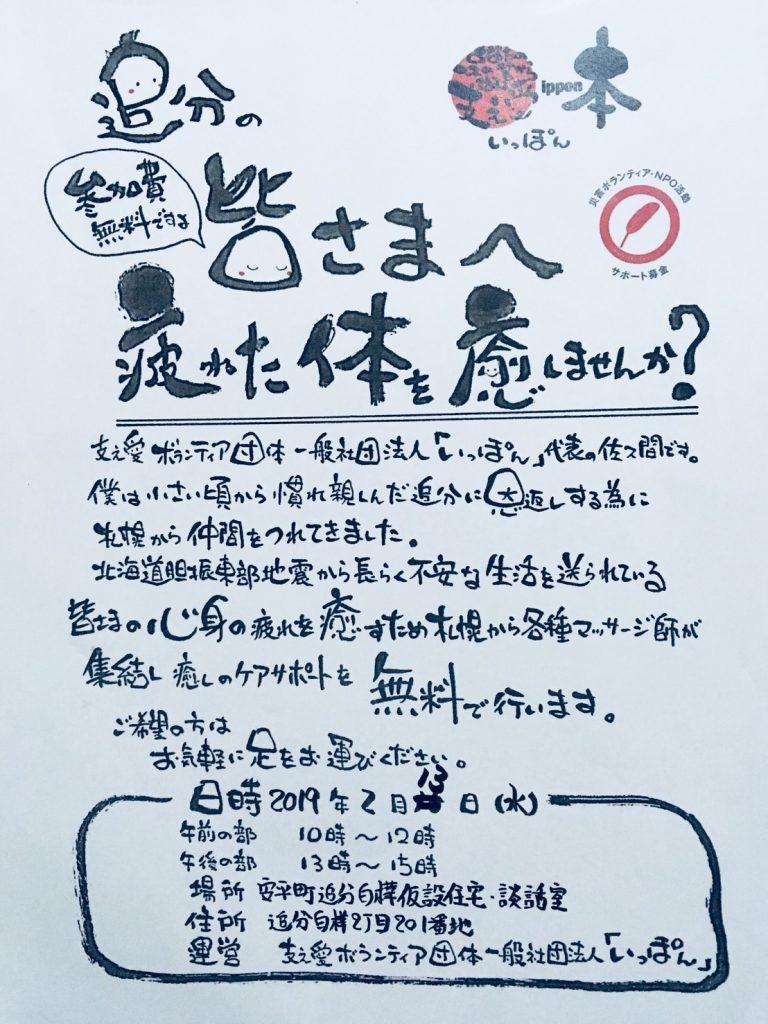 追分の
支え愛
ippon
一本
いっぽん
参加費
無料ですよ
皆さまへ
災害ボランティア・NPO活動
サポート募金
疲れた体を癒しませんか?
支え愛ボランティア団体一般社団法人「いっぽん」代表の佐久間です。
僕は小さい頃から慣れ親しんだ追分に恩返しする為に
札幌から仲間をつれてきました。
北海道胆振東部地震から長らく不安な生活を送られている
皆さまの心身の疲れを癒すため札幌から各種マッサージ師が
集結し癒しのケアサポートを無料で行います。
ご希望の方は
お気軽に足をお運びください。
日時2019年2月13日(水)
午前の部 10時~12時
午後の部 13時~15時
場所 安平町追分白樺仮設住宅・談話室
住所 追分白樺2丁目201番地
運営 支え愛ボランティア団体一般社団法人「いっぽん」